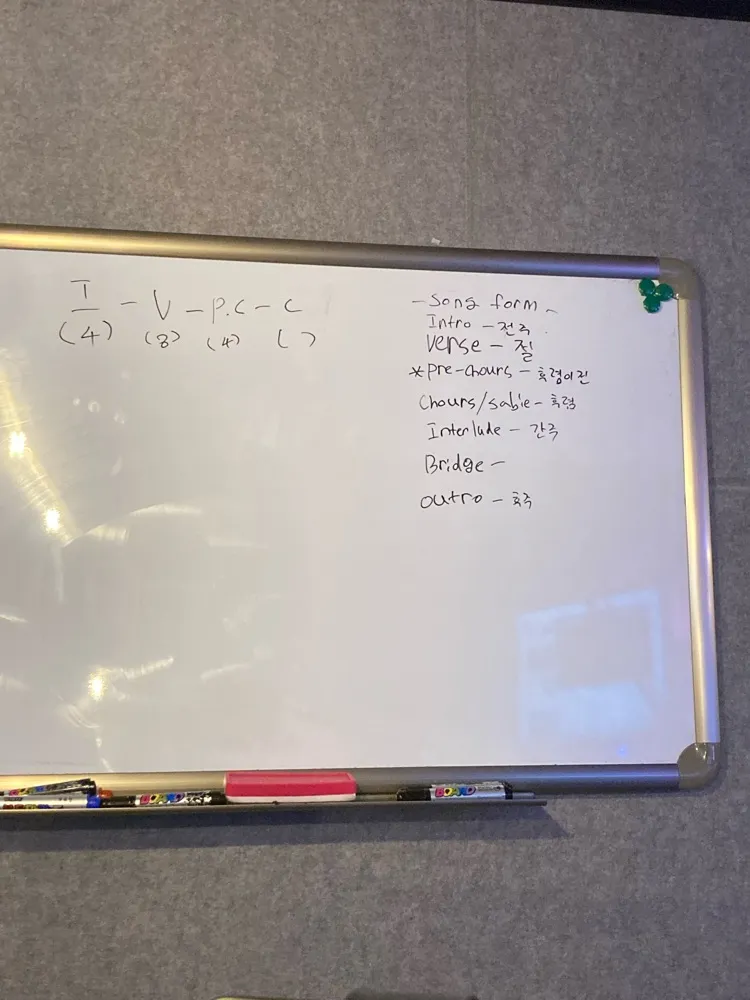 I - V - P.C - C
(4) (8) (4) ( )
- Song form -
Intro - 전주
Verse - 절
*Pre-chours - 훅렴이전
Chours/sabie - 훅렴
Interlude - 간주
Bridge -
outro - 훅주
BOARD
BOARD